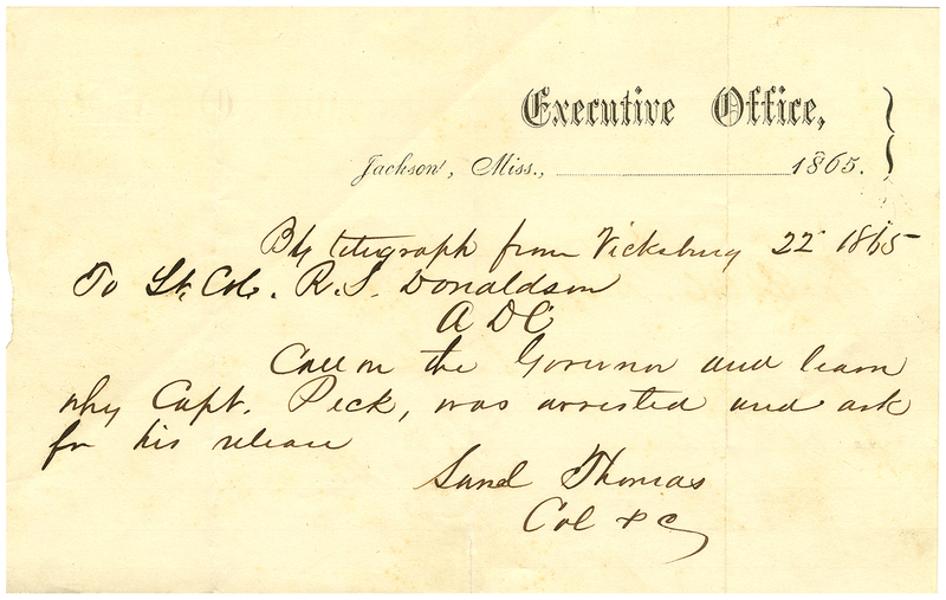 Executive Office,
Jackson, Miss., 1865.
By telegraph from Vicksburg 22 1865
To Lt. Col. R.S. Donaldson
A D C
Call on the Governor and learn
why Capt. Peck, was arrested and ask
for his release
Saml Thomas
Col & c